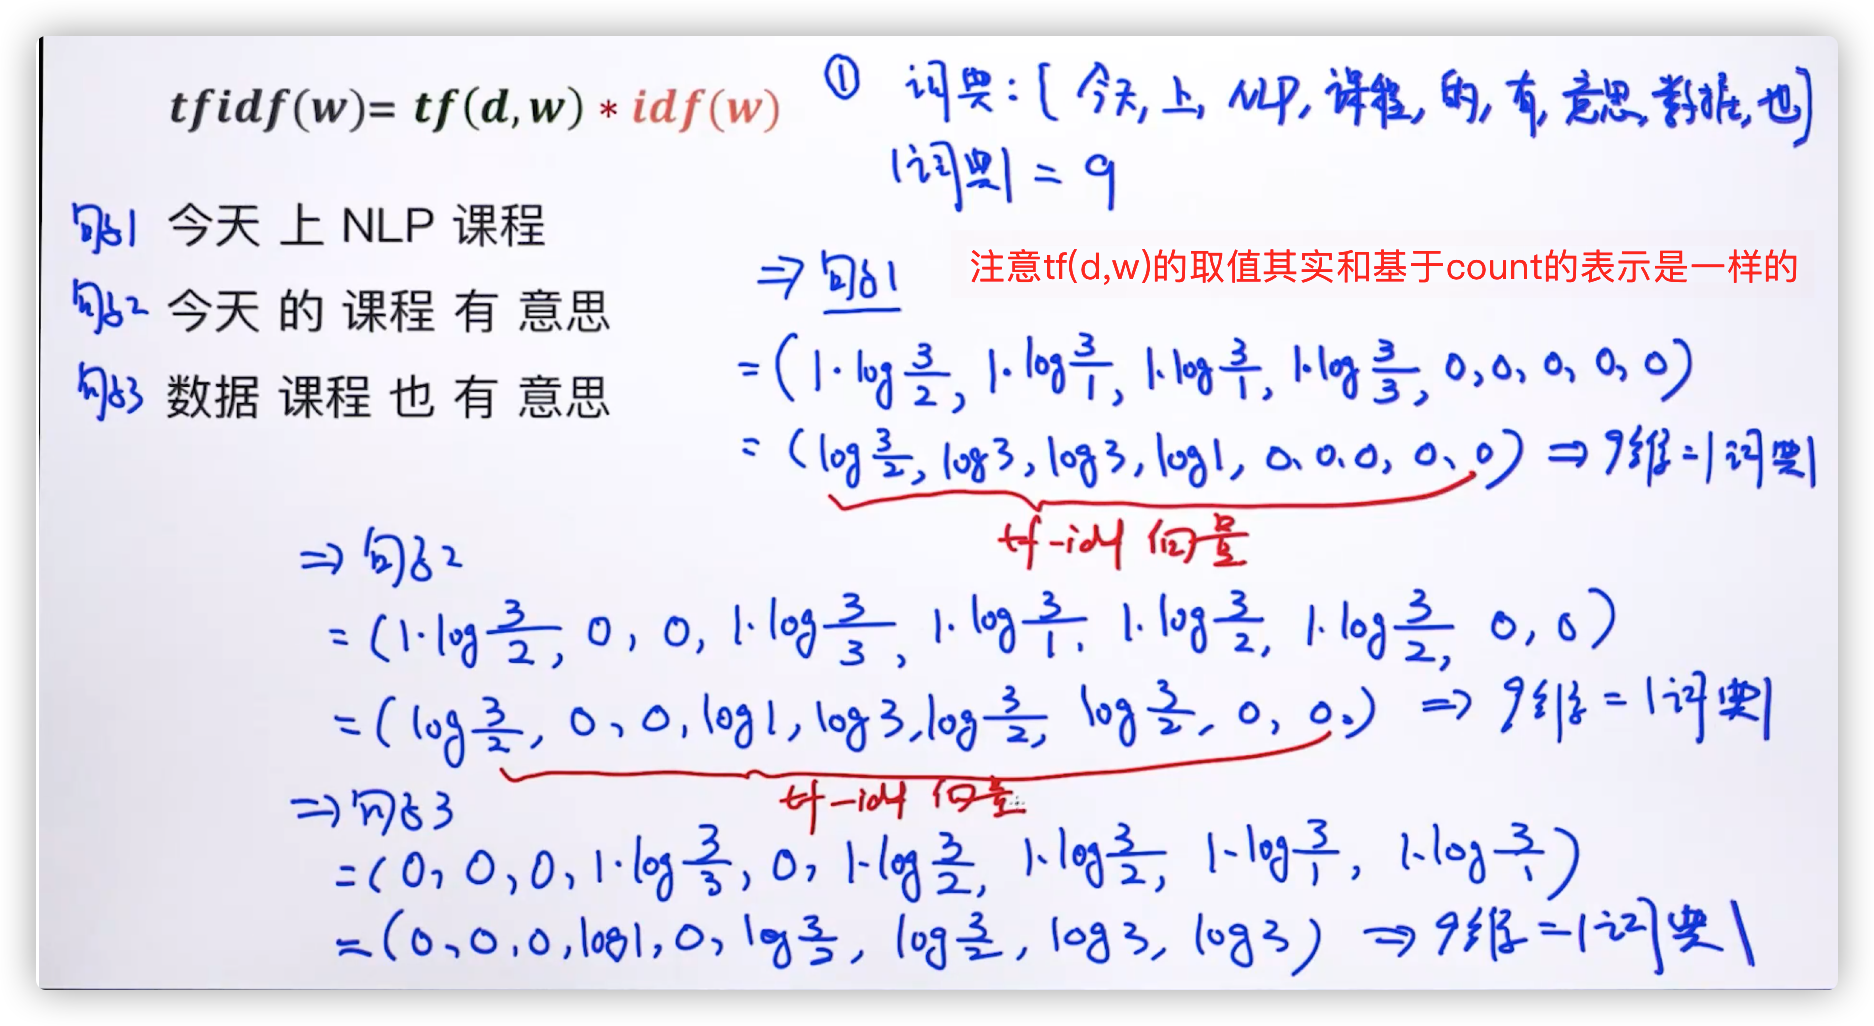 tfidf(w)= tf(d,w) * idf(w)
① 词典:[今天,上,NLP,课程,的,有,意思,数据,也]
|词典| = 9
句子1 今天 上 NLP 课程
句子2 今天 的 课程 有 意思
句子3 数据 课程 也 有 意思
⇒ 句子1
注意tf(d,w)的取值其实和基于count的表示是一样的
= (1·log 3/2, 1·log 3/1, 1·log 3/1, 1·log 3/3, 0, 0, 0, 0, 0)
= (log 3/2, log3, log3, log1, 0, 0, 0, 0, 0) ⇒ 9维=|词典|
tf-idf 向量
⇒ 句子2
= (1·log 3/2, 0, 0, 1·log 3/3, 1·log 3/1, 1·log 3/2, 1·log 3/2, 0, 0)
= (log 3/2, 0, 0, log1, log3, log 3/2, log 3/2, 0, 0) ⇒ 9维=|词典|
tf-idf 向量
⇒ 句子3
= (0, 0, 0, 1·log 3/3, 0, 1·log 3/2, 1·log 3/2, 1·log 3/1, 1·log 3/1)
= (0, 0, 0, log1, 0, log 3/2, log 3/2, log3, log3) ⇒ 9维=|词典|